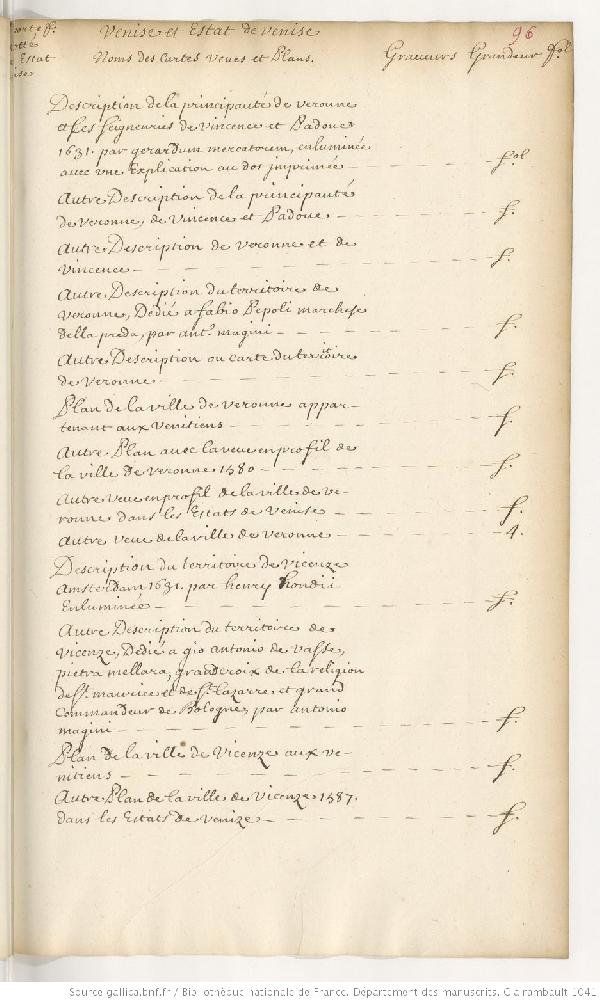 Venise et Estat de venise
96
Noms des Cartes Veues et Plans. Graveurs Grandeur fol.
Estat
Description de la principauté de veronne
et les seigneuries de vincence et Padoue
1631. par gerardum mercatorum, enluminée
avec une Explication au dos jmprimée — fol
Autre Description de la principauté
de veronne, de vincence et Padoue — f.
Autre Description de veronne et de
vincence — f.
Autre Description du territoire de
veronne, Dedié a fabio Pepoli marchese
della preda, par ant.º magini — f.
Autre Description ou carte du territoire
de veronne — f.
Plan de la ville de veronne appar-
tenant aux venitiens — f.
Autre Plan avec la veue en profil de
la ville de veronne 1580 — f.
Autre veue en profil de la ville de ve-
ronne dans les Estats de venise — f.
Autre veue de la ville de veronne — 4.
Description du territoire de vicenze
Amsterdam 1631. par henry hondii
Enluminée — f.
Autre Description du territoire de
vicenze, Dedié a gio antonio de vasse,
pietra mellara, grandcroix de la religion
de s.t maurice et de s.t lazarre et grand
Commandeur de Bologne, par antonio
magini — f.
Plan de la ville de Vicenze aux ve-
nitiens — f.
Autre Plan de la ville de Vicenze 1587.
dans les Estats de venize — f.
Source gallica.bnf.fr / Bibliothèque nationale de France. Département des manuscrits. Clairambault 1041